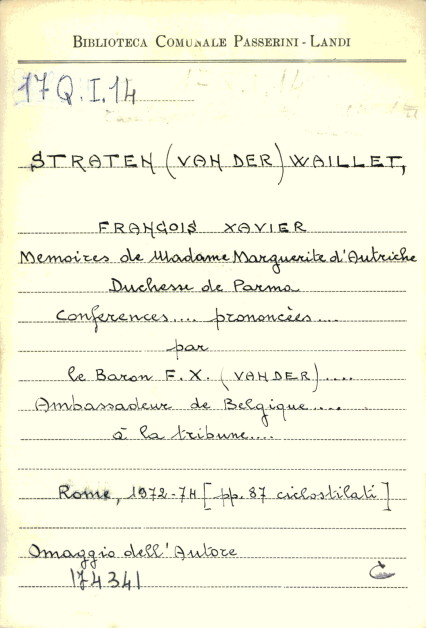 BIBLIOTECA COMUNALE PASSERINI - LANDI
17 Q. I. 14
STRATEN (VAN DER) WAILLET,
FRANÇOIS XAVIER
Memoires de Madame Marguerite d'Autriche
Duchesse de Parma
Conferences.... prononcées....
par
le Baron F. X. (VAN DER)....
Ambassadeur de Belgique....
à la tribune....
Rome, 1972-74 [pp. 87 ciclostilati]
Omaggio dell'Autore
174341